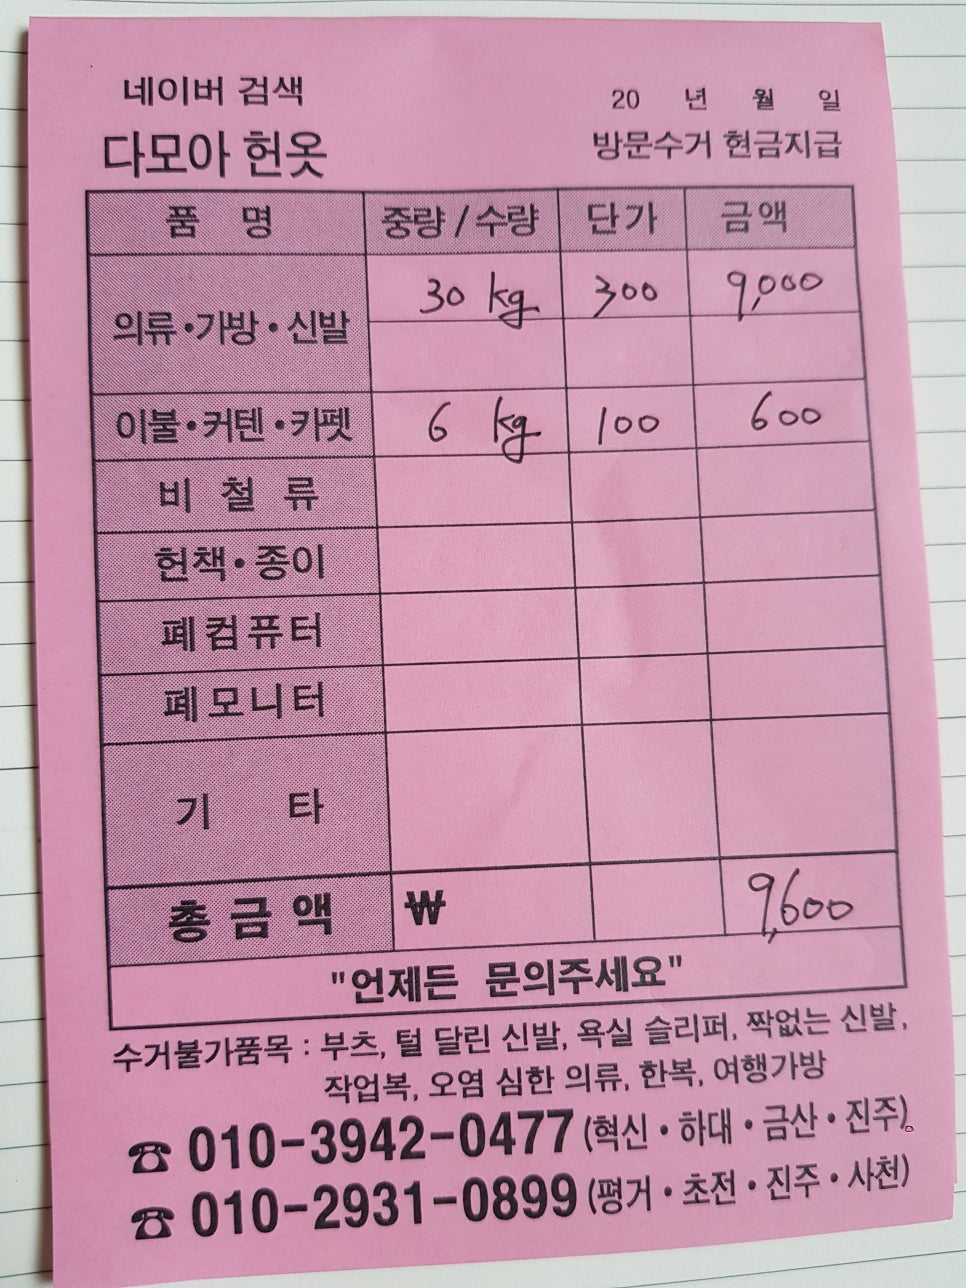 네이버 검색
20 년 월 일
다모아 헌옷
방문수거 현금지급
품 명 중량 / 수량 단가 금액
의류·가방·신발 30 kg 300 9,000
이불·커텐·카펫 6 kg 100 600
비 철 류
헌책·종이
폐컴퓨터
폐모니터
기 타
총 금 액 ₩ 9,600
"언제든 문의주세요"
수거불가품목 : 부츠, 털 달린 신발, 욕실 슬리퍼, 짝없는 신발,
작업복, 오염 심한 의류, 한복, 여행가방
☎ 010-3942-0477 (혁신·하대·금산·진주)
☎ 010-2931-0899 (평거·초전·진주·사천)